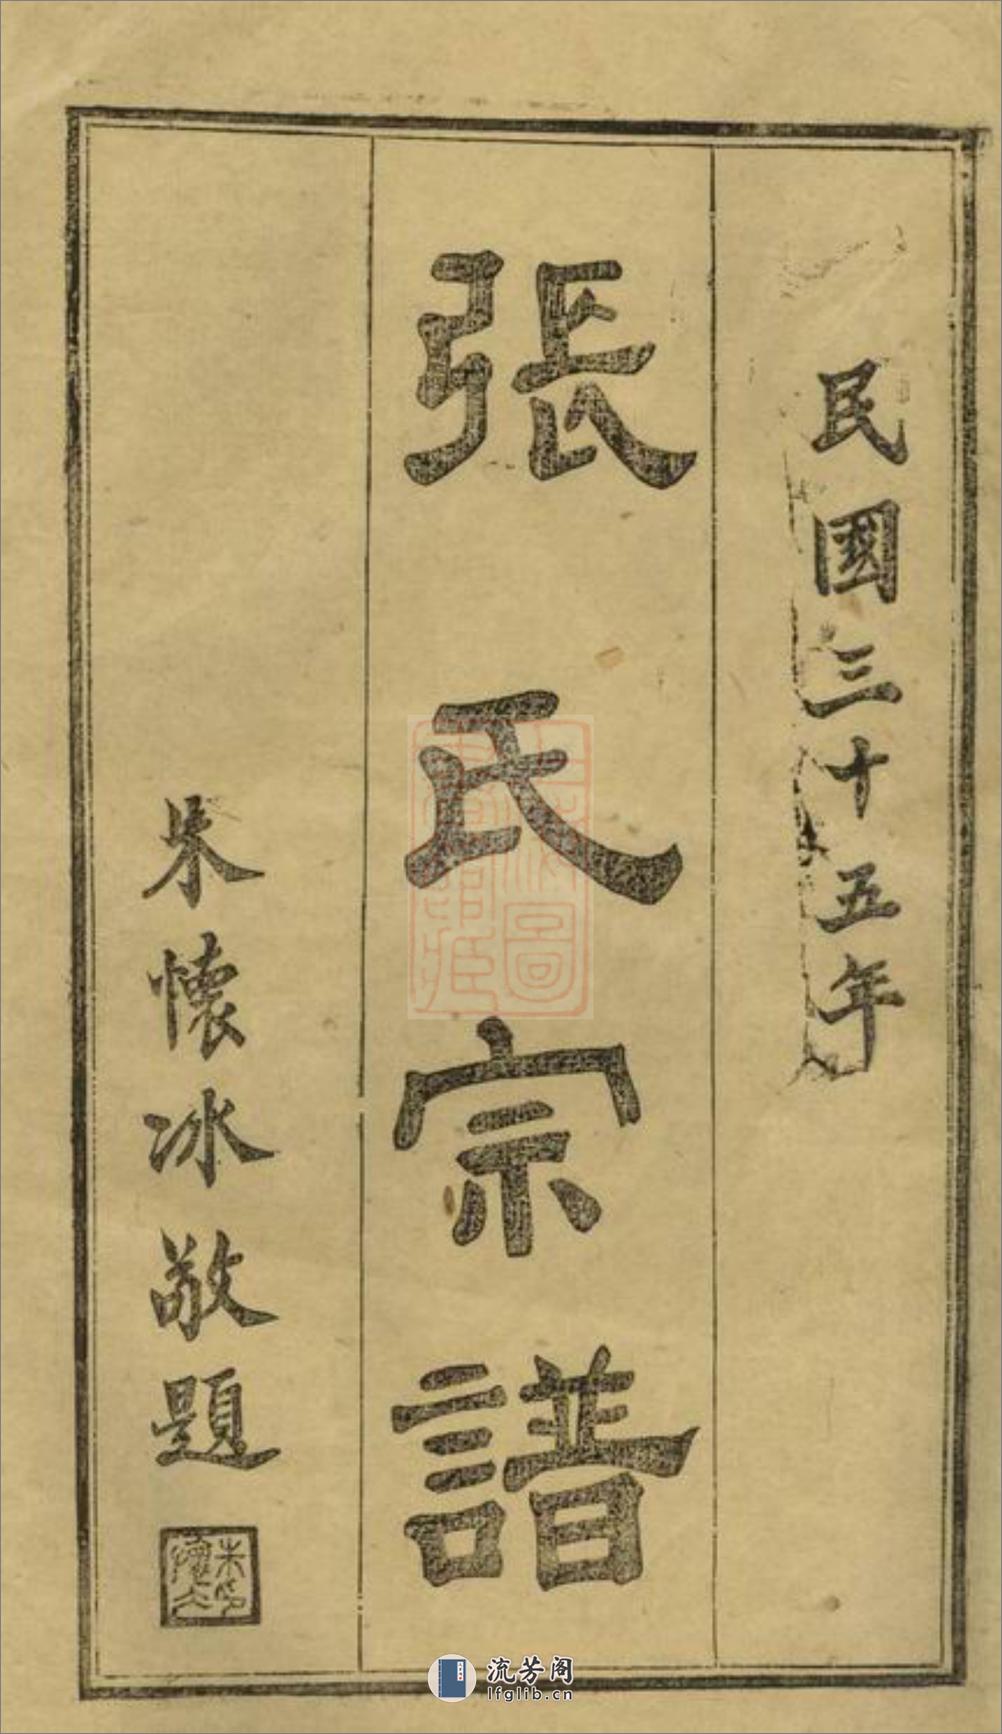 民國三十五年
張氏宗譜
朱懷冰敬題
流芳阁
lfglib.cn